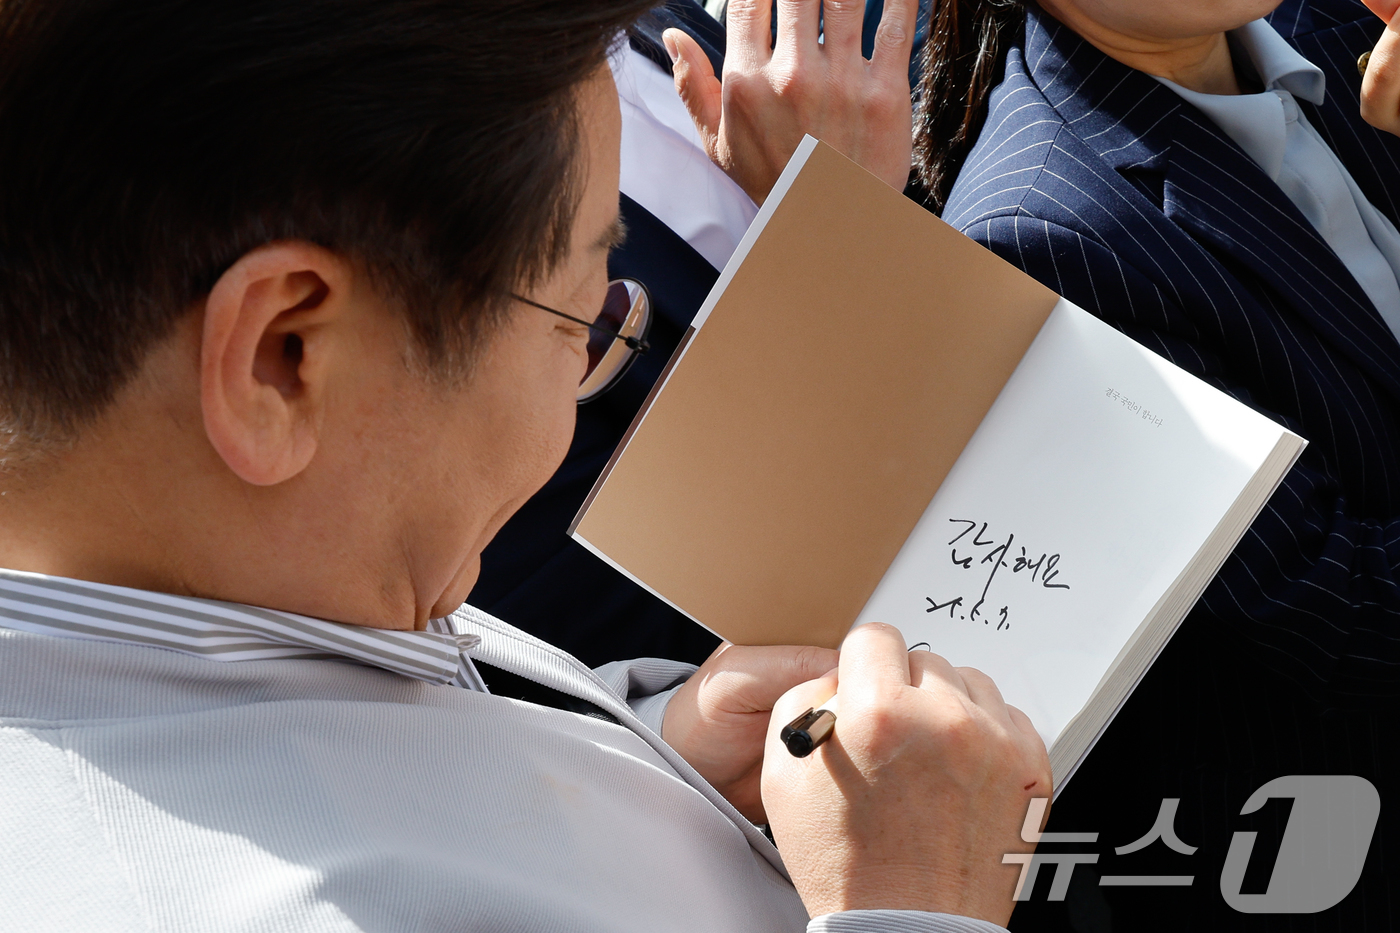 결국 국민이 합니다
감사해요
25.5.7.
뉴스1